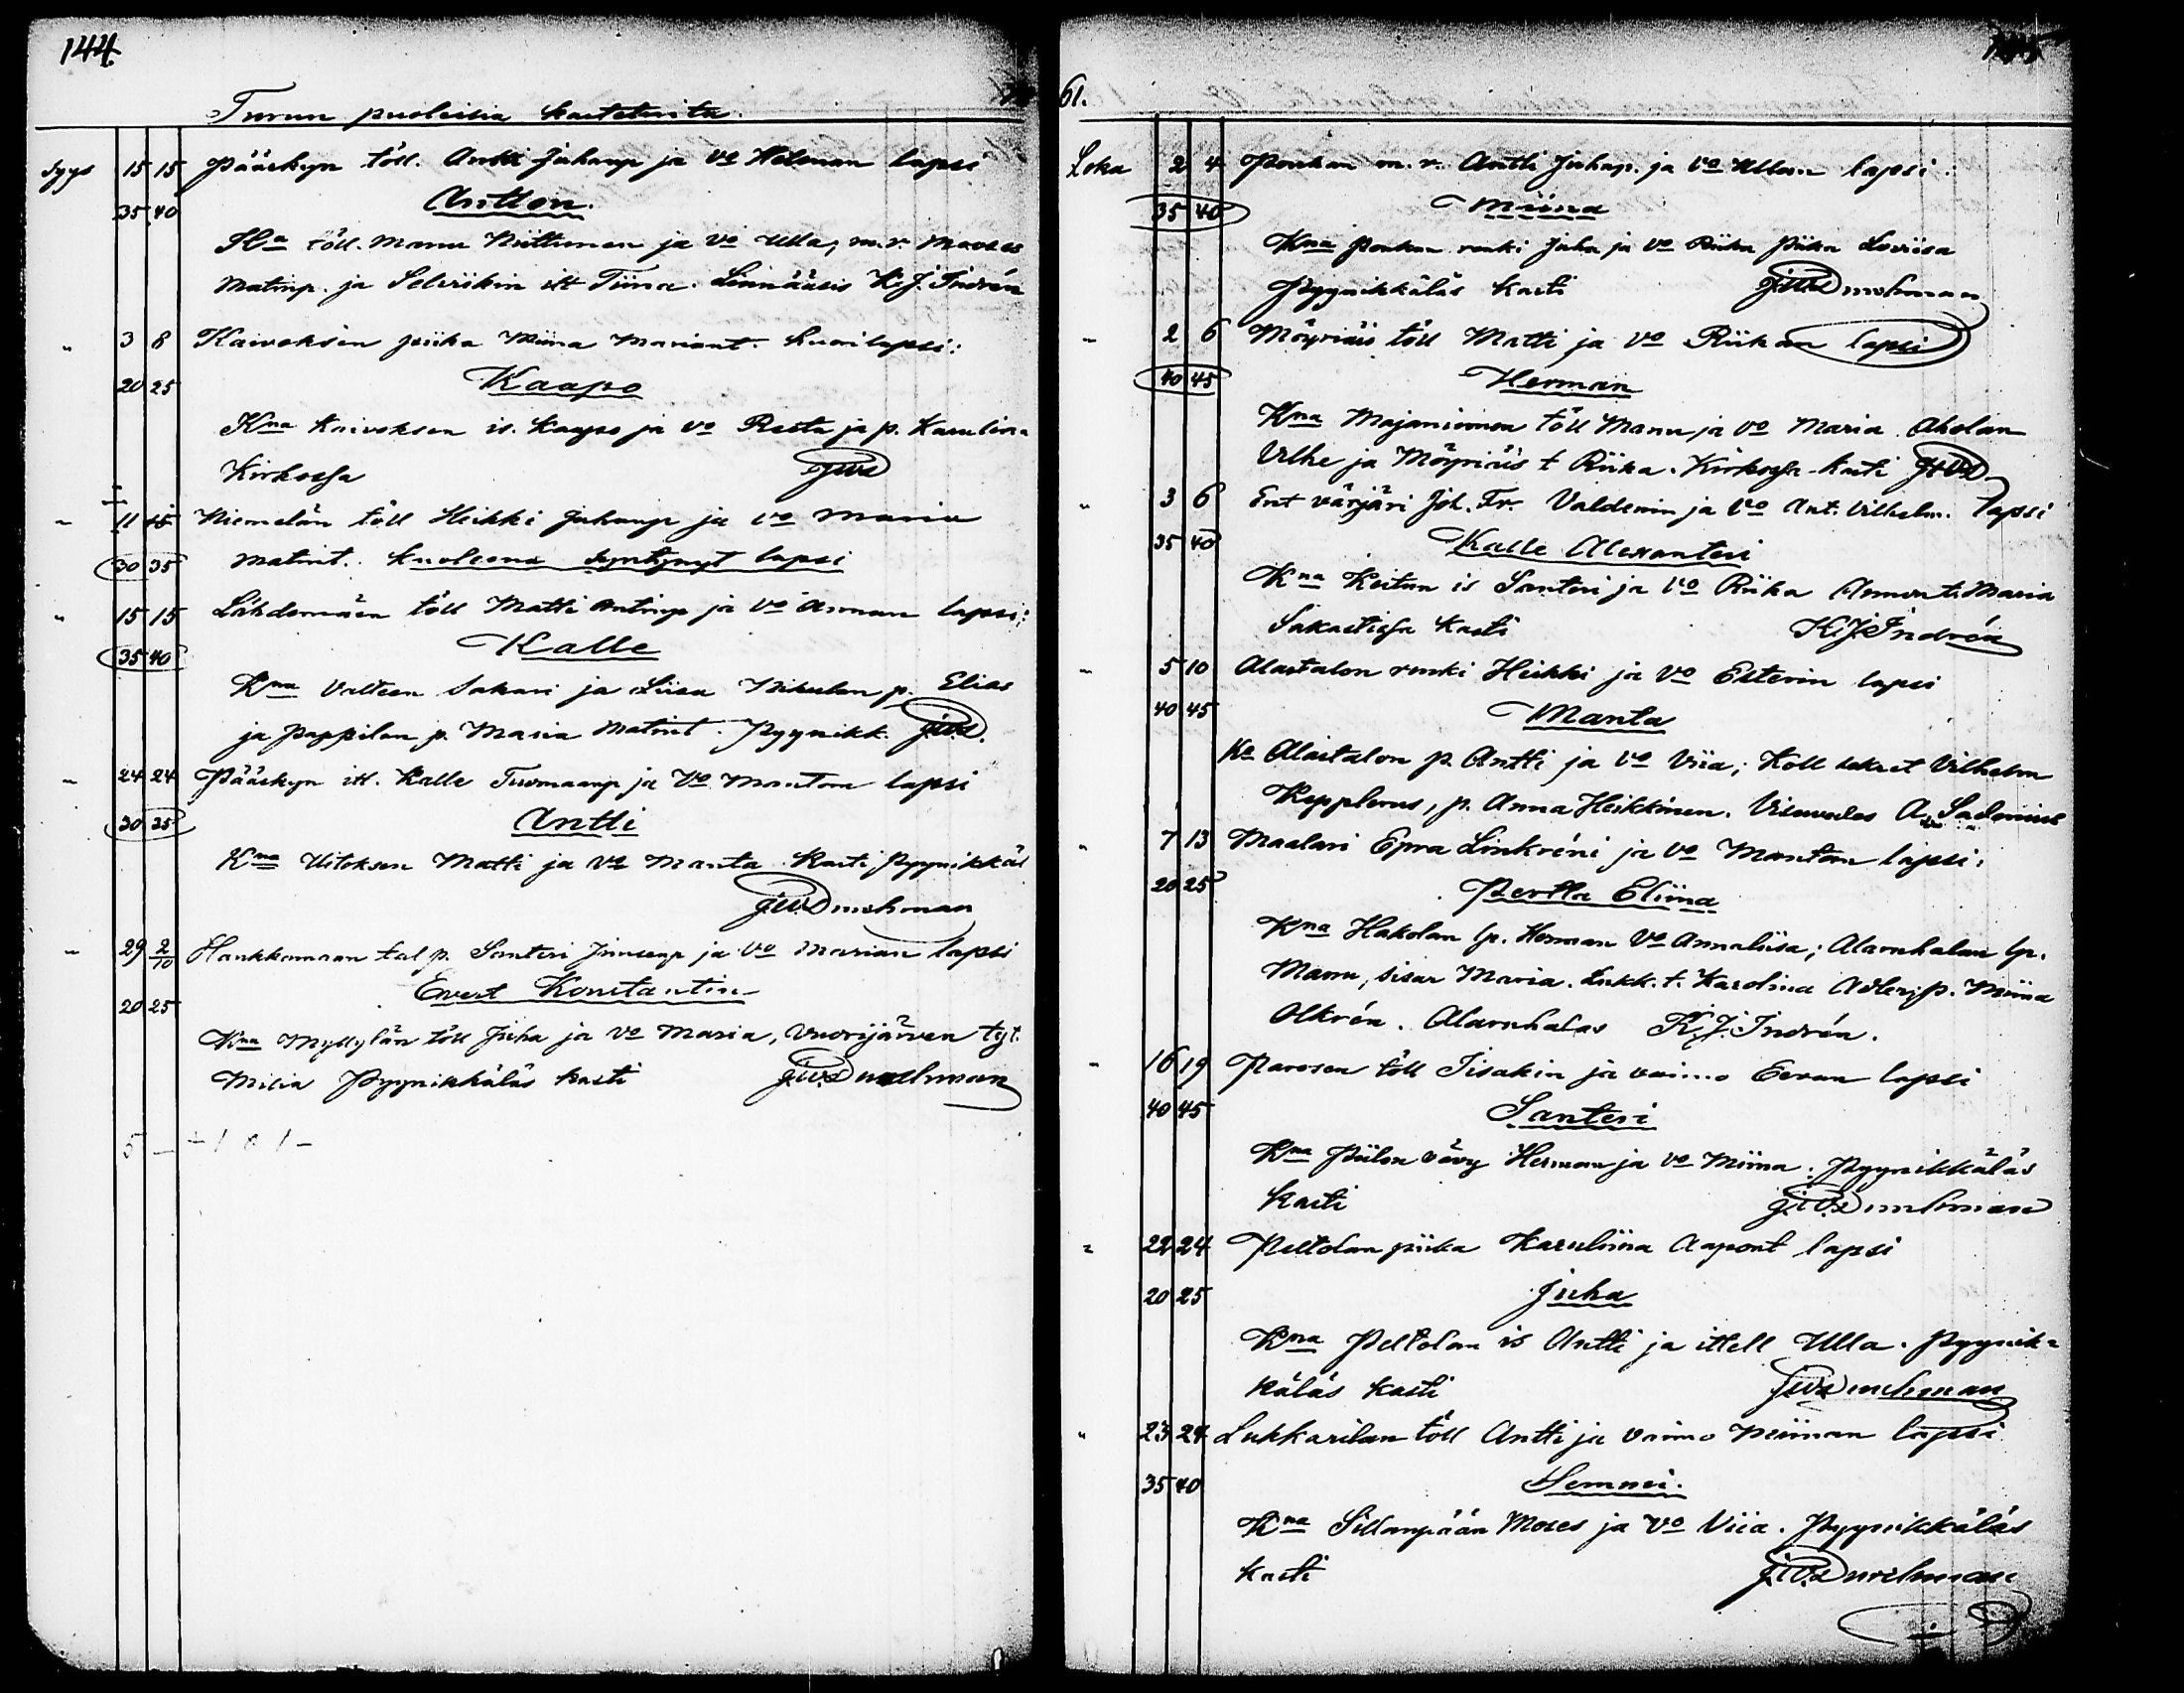 144
Turun puoleisia kastetuita.
Syys 15 15 Pääskyn töll. Antti Juhanp ja vo Helenan lapsi
35 40 Antton.
Kna töll. Manu Niittunen ja vo Ulla, m.v. Mooses
Matinp. ja Selvrikin itt Tiina. Linnääsis K. J. Indrén
" 3 8 Kaivoksen piika Miina Mariant. huorilapsi:
20 25 Kaapo
Kna Kaivoksen is. Kaapo ja vo Reeta ja p. Karulina
Kirkossa
- 11 15 Niemelän töll Heikki Juhanp ja vo Maria
30 35 Matint. kuolleena syntynyt lapsi
" 15 15 Lähdemäen töll Matti Antinp ja vo Annan lapsi:
35 40 Kalle
Kna Valteen Sakari ja Liisa Nikulan p. Elias
ja Pappilan p. Maria Matint. Pyynikk.
- 24 24 Pääskyn itt. Kalle Tuomaanp ja Vo Mantan lapsi
30 35 Antti
Kna Uitoksen Matti ja Vo Manta. Kasti Pyynikkäl
- 29 2/10 Hankkamaan tal p. Santeri Juusenp ja Vo Marian lapsi
20 25 Evert Konstantin
Kna Myllylän töll Juha ja vo Maria, Vuorijärven tyt.
Milia Pyynikkäläs kasti
61.
Loka 2 4 Poukan m.v. Antti Juhap. ja vo Ullan lapsi:
35 40 Miina
Kna Poukan renki Juha ja vo Riika piika Loviisa
Pyynikkäläs kasti
- 2 6 Möyriäis töll Matti ja vo Riikan lapsi
40 45 Herman
Kna Majaniemen töll Manu ja vo Maria. Aholan
Vilhe ja Möyriäis t Riika. Kirkossa kasti
" 3 6 Ent värjäri Joh. Fr. Valdenin ja Vo Ant. Vilhelm. lapsi
35 40 Kalle Alexanteri
Kna Keitun is Santeri ja Vo Riika Annan t. Maria
Sakastissa kasti K. J. Indrén
- 5 10 Alastalon renki Heikki ja Vo Esterin lapsi
40 45 Manta
Ka Alastalon p. Antti ja vo Viia; Koll sekret Vilhelm
Kepplerus, p. Anna Heikkinen. A. Sadenius
" 7 13 Maalari Epra Linkréni ja vo Mantan lapsi:
20 25 Pertta Eliina
Kna Hakolan lp. Herman Vo Annaliisa; Alarnhalan lp.
Manu, sisar Maria. Lukk. t. Karolina Adler, p. Miina
Olkrén. Alarnhalas K. J. Indrén.
- 16 19 Parosen töll Iisakin ja vaimo Eevan lapsi
40 45 Santeri
Kna Piilon vävy Herman ja vo Miina. Pyynikkäläs
kasti
" 22 24 Peltolan piika Karuliina Aapont lapsi
20 25 Juha
Kna Peltolan is Antti ja ittell Ulla. Pyynik=
käläs kasti
" 23 24 Lukkarilan töll Antti ja vaimo Miinan lapsi
35 40 Semmi.
Kna Sillanpään Moses ja vo Viia. Pyynikkäläs
kasti